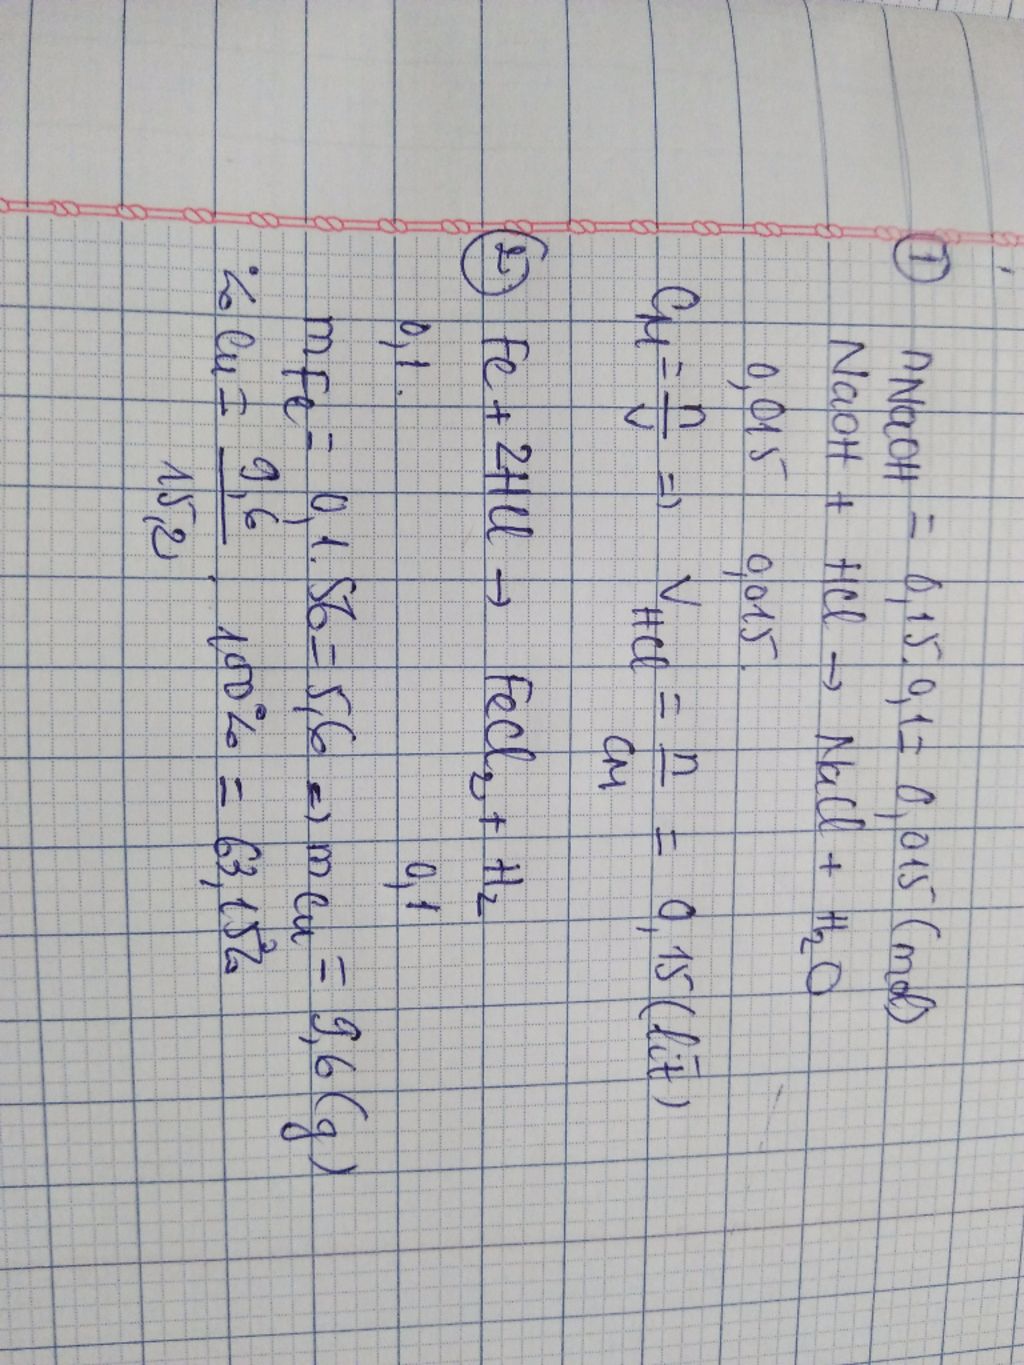 ① nNaOH = 0,15.0,1 = 0,015 (mol)
NaOH + HCl → NaCl + H₂O
0,015 0,015.
CM = n/V ⇒ VHCl = n/CM = 0,15 (lít)
② Fe + 2HCl → FeCl₂ + H₂
0,1. 0,1
mFe = 0,1.56 = 5,6 ⇒ mCu = 9,6 (g)
%Cu = 9,6/15,2 . 100% = 63,15%